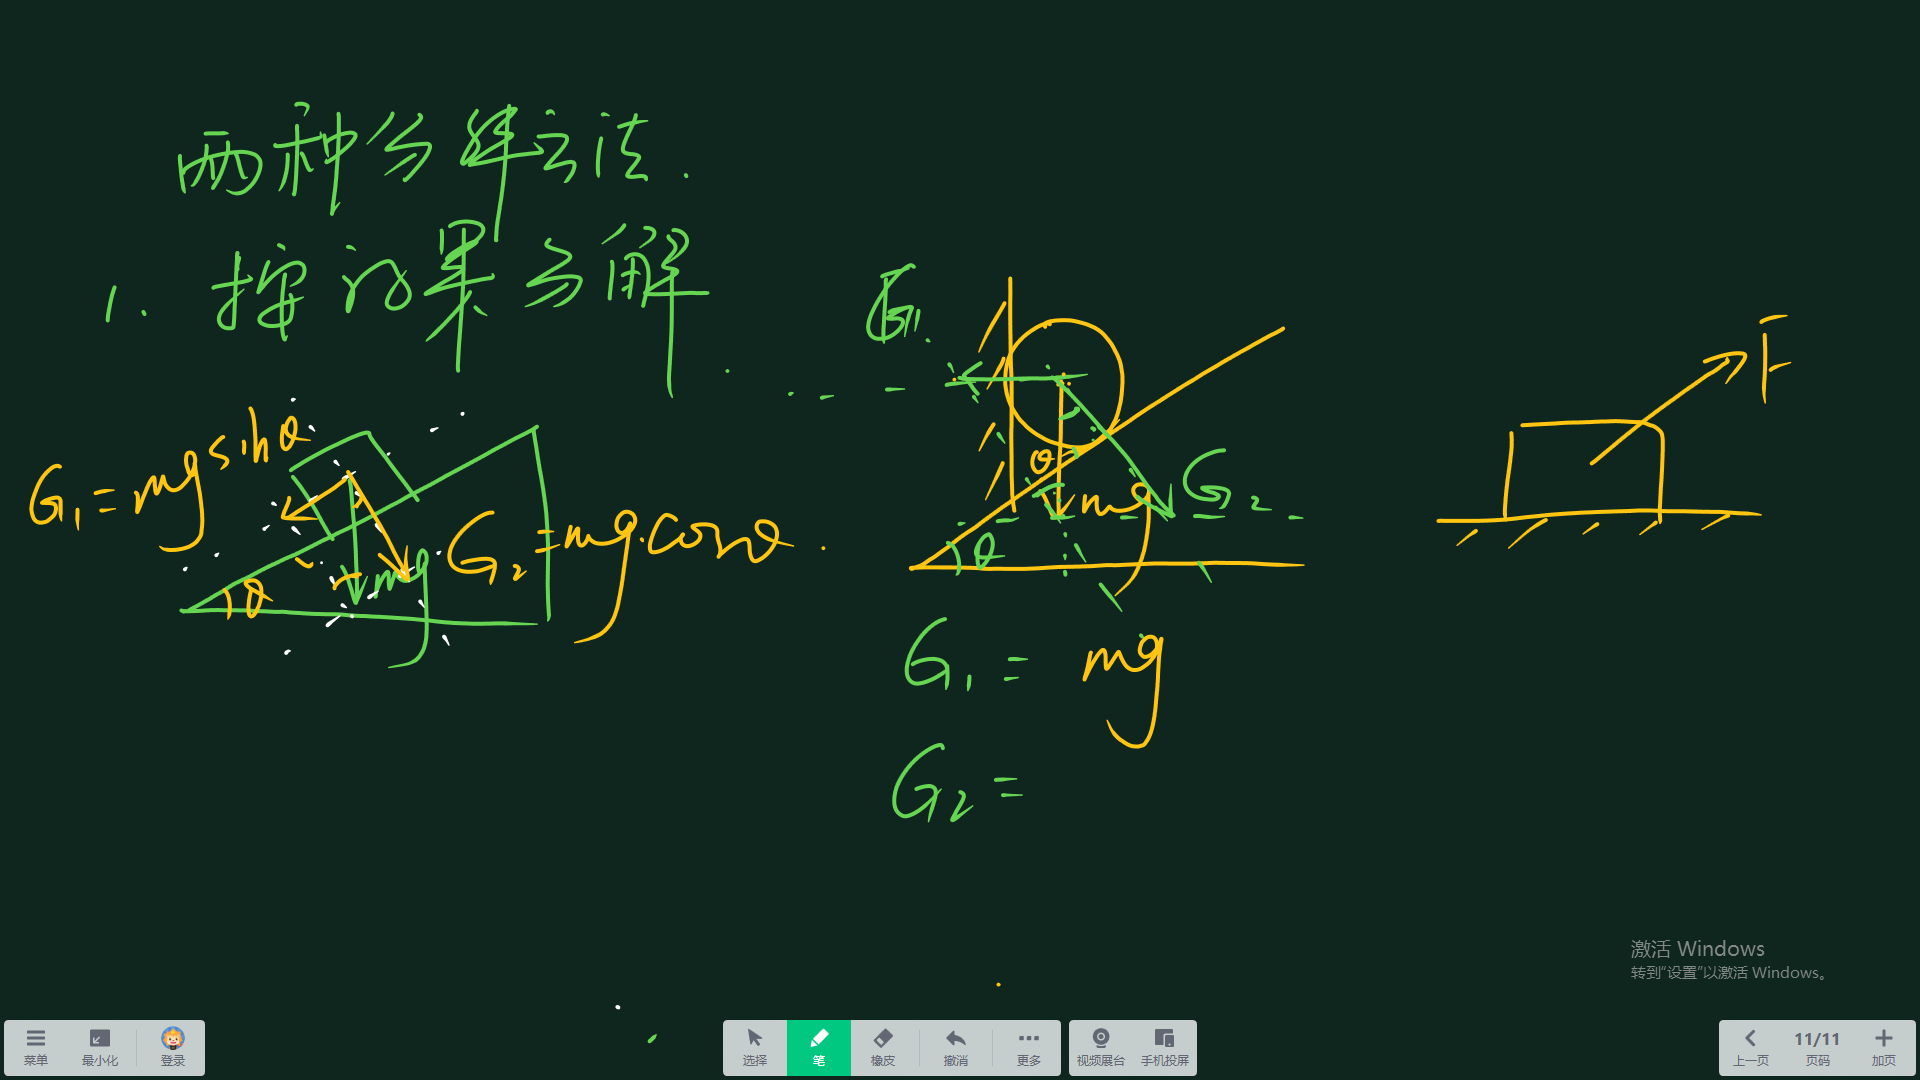 两种分解方法.
1. 按效果分解
G₁=mgsinθ
G₂=mg.cosθ.
mg
θ
G₁
F
G₂
θ
mg
θ
G₁=mg
G₂=
激活 Windows
转到"设置"以激活 Windows。
菜单 最小化 登录
选择 笔 橡皮 撤消 更多
视频展台 手机投屏
上一页 11/11 页码 加页